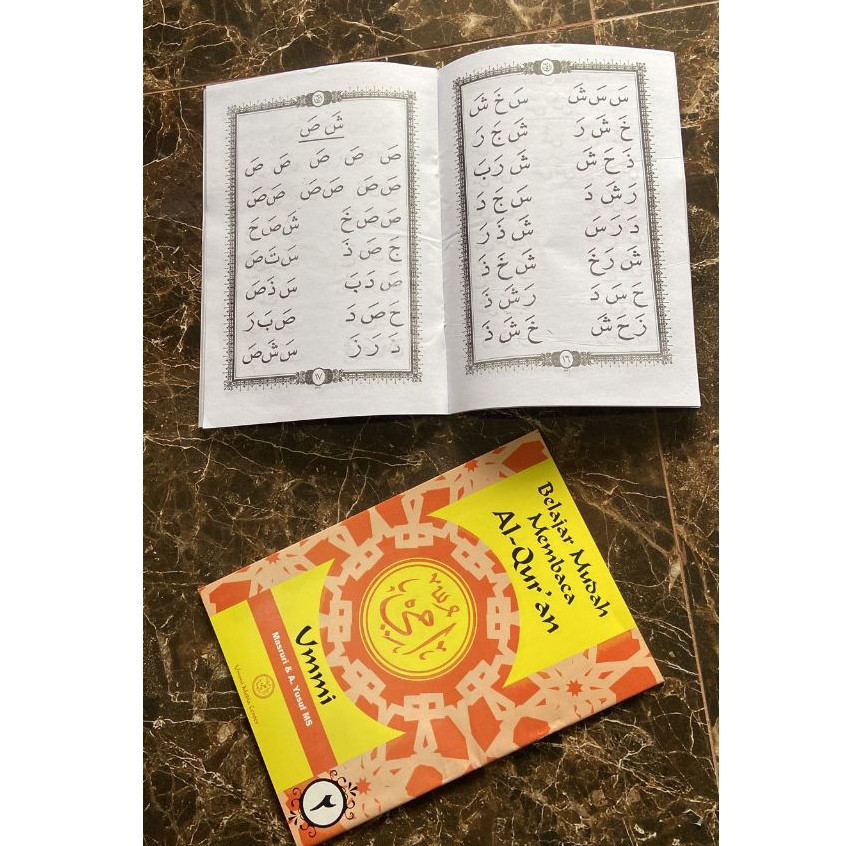 سَ سَ شَ سَ خَ شَ
خَ شَ رَ شَ جَ رَ
ذَ حَ شَ شَ رَبَ
رَ شَ دَ سَ جَ دَ
دَ رَ سَ شَ ذَ رَ
شَ رَخَ شَ خَ ذَ
حَ سَ دَ رَ شَ ذَ
زَ حَ شَ خَ شَ ذَ
١٦
شَ صَ
صَ صَ صَ صَ صَ
صَ صَ صَ صَ صَ صَ
صَ صَ خَ شَ صَ حَ
جَ صَ ذَ سَ تَ صَ
صَ دَبَ سَ ذَ صَ
حَ صَ دَ صَ بَ رَ
دَ رَ زَ سَ شَ صَ
١٧
Belajar Mudah
Membaca
Al-Qur'an
أُمِّي
Ummi
Masruri & A. Yusuf MS
Ummi Media Center
٢